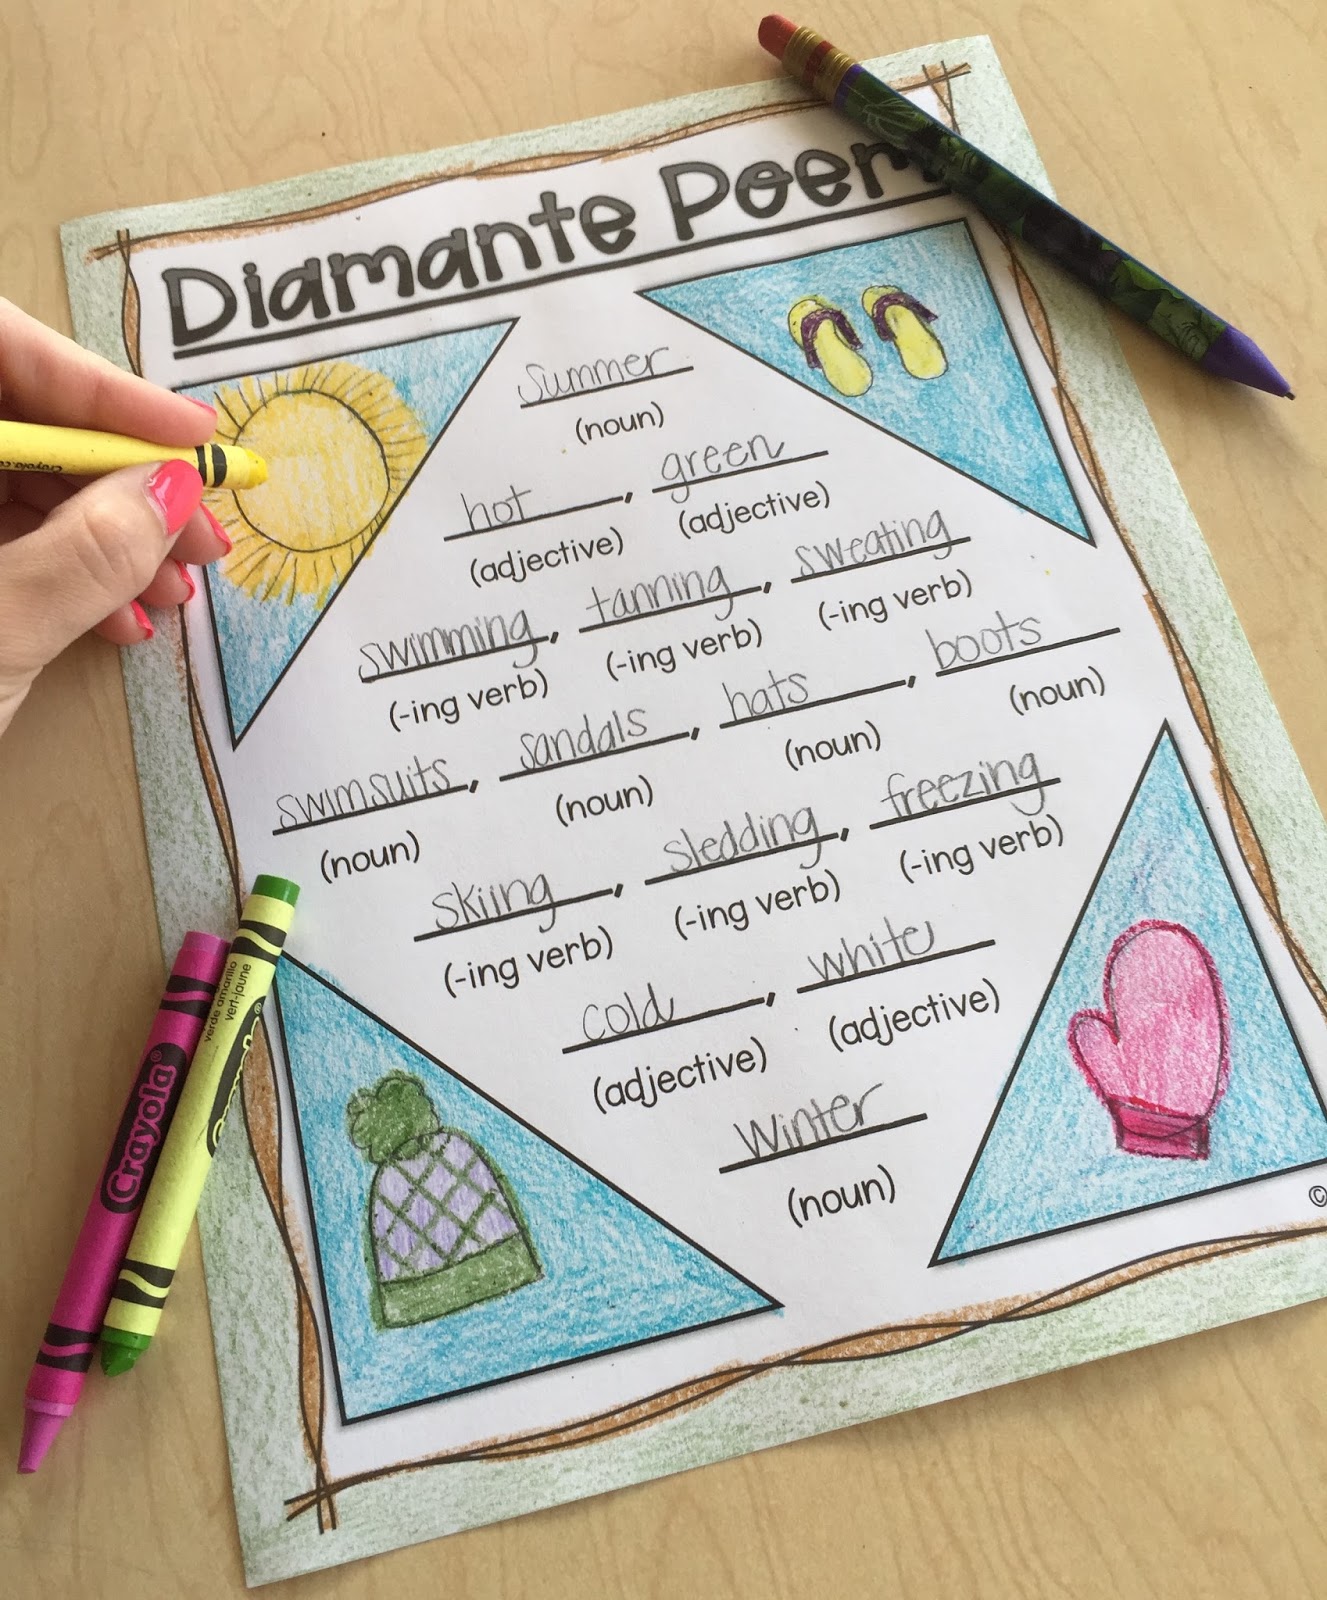 Diamante Poem
Summer
(noun)
hot, green
(adjective) (adjective)
swimming, tanning, sweating
(-ing verb) (-ing verb) (-ing verb)
swimsuits, sandals, hats, boots
(noun) (noun) (noun) (noun)
skiing, sledding, freezing
(-ing verb) (-ing verb) (-ing verb)
cold, white
(adjective) (adjective)
Winter
(noun)
©
Crayola®
verde amarillo
vert-jaune